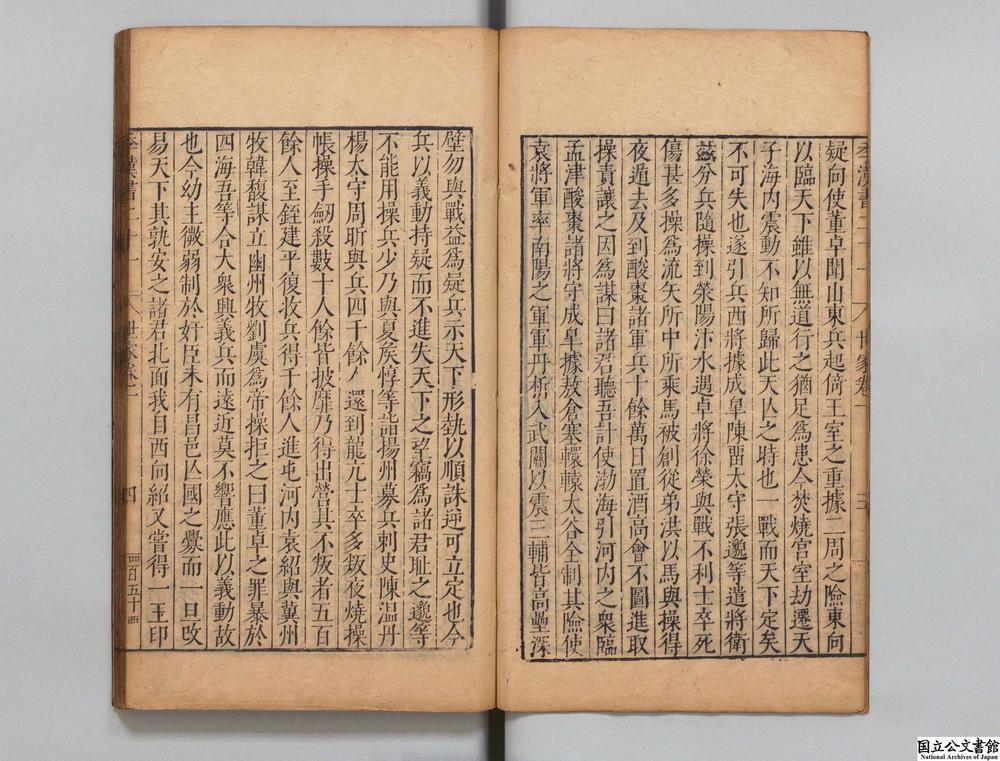 疑向使董卓聞山東兵起倚王室之重據二周之險東向
以臨天下雖以無道行之猶足爲患今焚燒宮室劫遷天
子海內震動不知所歸此天亾之時也一戰而天下定矣
不可失也遂引兵西將據成皐陳畱太守張邈等遣將衛
茲分兵隨操到滎陽汴水遇卓將徐榮與戰不利士卒死
傷甚多操爲流矢所中所乘馬被創從弟洪以馬與操得
夜遁去及到酸棗諸軍兵十餘萬日置酒高會不圖進取
操責讓之因爲謀曰諸君聽吾計使渤海引河內之衆臨
孟津酸棗諸將守成皐據敖倉塞轘轅太谷全制其險使
袁將軍率南陽之軍軍丹析入武關以震三輔皆高壘深
季漢書二十一
世家卷一
三
壁勿與戰益爲疑兵示天下形埶以順誅逆可立定也今
兵以義動持疑而不進失天下之望竊爲諸君恥之邈等
不能用操兵少乃與夏矦惇等詣揚州募兵刺史陳溫丹
楊太守周昕與兵四千餘人還到龍亢士卒多叛夜燒操
帳操手劒殺數十人餘皆披靡乃得出營其不叛者五百
餘人至銍建平復收兵得千餘人進屯河內袁紹與冀州
牧韓馥謀立幽州牧劉虞爲帝操拒之曰董卓之罪暴於
四海吾等合大衆興義兵而遠近莫不響應此以義動故
也今幼主微弱制於奸臣未有昌邑亾國之釁而一旦改
易天下其孰安之諸君北面我自西向紹又嘗得一玉印
季漢書二十一
世家卷一
四
四百五十四
国立公文書館
National Archives of Japan